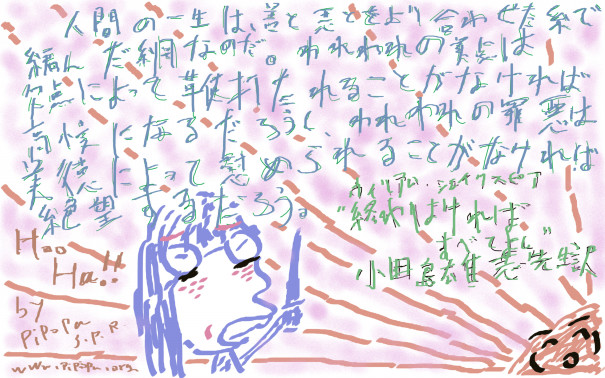 人間の一生は、善と悪とをより合わせた糸で
編んだ網なのだ。われわれの美点は
欠点によって鞭打たれることがなければ
高慢になるだろうし、われわれの罪悪は
美徳によって慰められることがなければ
絶望するだろう。
ウィリアム・シェイクスピア
"終わりよければ
すべてよし"
小田島雄志先生訳
Hoo
Ha!!
by
PiPoPa
S.P.R
www.pipopa.org